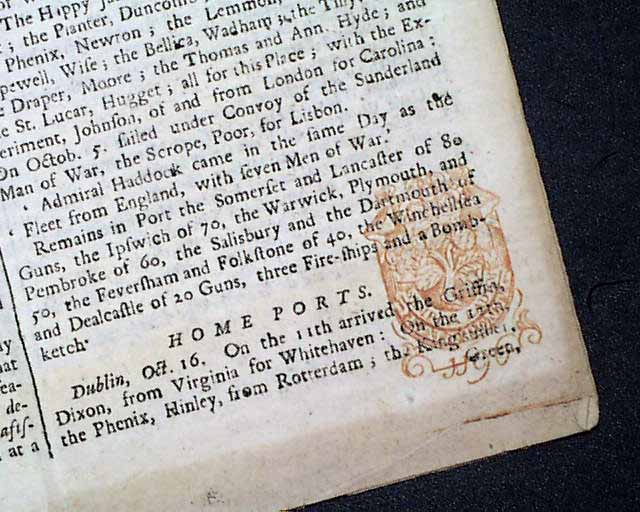 The Happy
; the Planter, Dunco
Phenix, Newton; the Lemmon,
pewell, Wife; the Bellica, Wadham; the
e Draper, Moore; the Thomas and Ann, Hyde; and
e St. Lucar, Hugget; all for this Place; with the Ex-
eriment, Johnſon, of and from London for Carolina:
On Octob. 5. ſailed under Convoy of the Sunderland
Man of War, the Scrope, Poor, for Lisbon.
‘ Admiral Haddock came in the ſame Day as the
‘ Fleet from England, with ſeven Men of War.’
Remains in Port the Somerſet and Lancaſter of 80
Guns, the Ipſwich of 70, the Warwick, Plymouth, and
Pembroke of 60, the Salisbury and the Dartmouth of
50, the Feverſham and Folkſtone of 40, the Winchelſea
and Dealcaſtle of 20 Guns, three Fire-ſhips and a Bomb-
ketch.
HOME PORTS.
Dublin, Oct. 16. On the 11th arrived the Griffin,
Dixon, from Virginia for Whitehaven: On the 12th,
the Phenix, Hinley, from Rotterdam; the
Green,
hat
ea-
de-
aſtſ-
at a